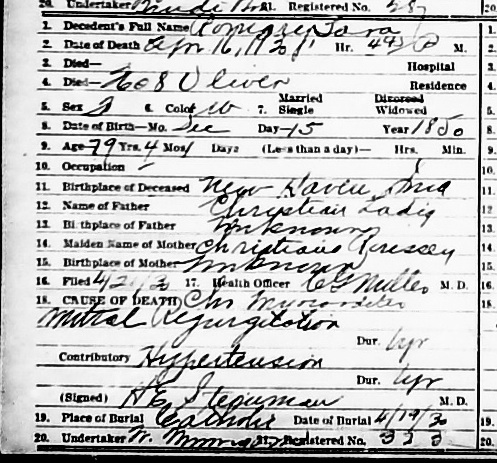 20. Undertaker Registered No.
1. Decedent's Full Name
2. Date of Death Apr 16, 1930 Hr. M.
3. Died— Hospital
4. Died— 608 Oliver Residence
5. Sex F 6. Color W 7. Married Single Divorced Widowed
8. Date of Birth—Mo. Dec Day 15 Year 1850
9. Age 79 Yrs. 4 Mos 1 Days (Less than a day)— Hrs. Min.
10. Occupation —
11. Birthplace of Deceased New Haven Ind
12. Name of Father Christian Ladig
13. Birthplace of Father Unknown
14. Maiden Name of Mother Christiane
15. Birthplace of Mother Unknown
16. Filed 17. Health Officer Miller M. D.
18. CAUSE OF DEATH Chr Myocarditis
Mitral Regurgitation
Dur. 1 yr
Contributory Hypertension
Dur. 1 yr
(Signed) M. D.
19. Place of Burial Catholic Date of Burial 4/19/30 19.
20. Undertaker 21. Registered No. 333 20.